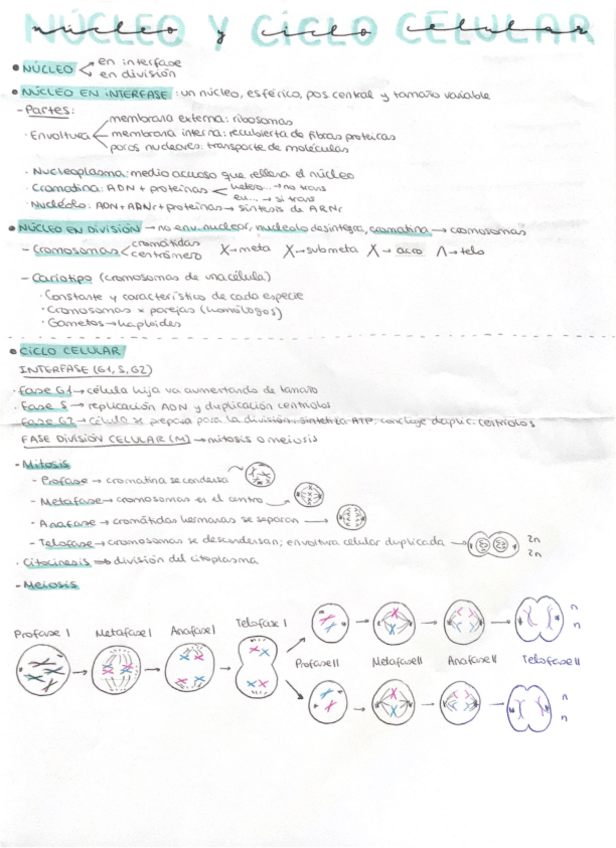 NÚCLEO Y CICLO CELULAR
• NÚCLEO en interfase
en división
• NÚCLEO EN INTERFASE: un núcleo, esférico, pos central y tamaño variable
- Partes:
membrana externa: ribosomas
· Envoltura membrana interna: recubierta de fibras proteicas
poros nucleares: transporte de moléculas
· Nucleoplasma: medio acuoso que rellena el núcleo
· Cromatina: ADN + proteínas hetero... → no trans
eu... → si trans
· Nucléolo: ADN + ADNr + proteínas → síntesis de ARNr
• NÚCLEO EN DIVISIÓN → no env. nuclear, nucleolo desintegra, cromatina → cromosomas
- Cromosomas cromátidas
centrómero
X → meta X → submeta X → acro Λ → telo
- Cariotipo (cromosomas de una célula)
· Constante y característico de cada especie
· Cromosomas x parejas (homólogos)
· Gametos → haploides
• CICLO CELULAR
INTERFASE (G1, S, G2)
· Fase G1 → célula hija va aumentando de tamaño
· Fase S → replicación ADN y duplicación centriolos
· Fase G2 → célula se prepara para la división, sintetiza ATP, concluye duplic. centriolos
FASE DIVISIÓN CELULAR (M) → mitosis o meiosis
- Mitosis
- Profase → cromatina se condensa
- Metafase → cromosomas en el centro
- Anafase → cromátidas hermanas se separan
- Telofase → cromosomas se descondensan; envoltura celular duplicada → 2n
2n
· Citocinesis ⇒ división del citoplasma
- Meiosis
Profase I Metafase I Anafase I Telofase I
n
n
Profase II Metafase II Anafase II Telofase II
n
n